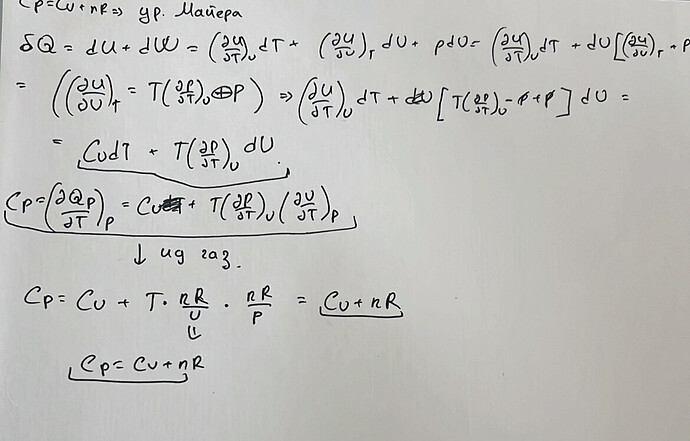 Cp=Cv+nR => ур. Майера
δQ = dU + dW = (∂U/∂T)_v dT + (∂U/∂v)_T dv + pdv = (∂U/∂T)_v dT + dv[(∂U/∂v)_T + p
= ((∂U/∂v)_T = T(∂p/∂T)_v ⊖ p) => (∂U/∂T)_v dT + [T(∂p/∂T)_v - p + p] dv =
= CvdT + T(∂p/∂T)_v dv.
Cp = (∂Qp/∂T)_p = Cv + T(∂p/∂T)_v (∂v/∂T)_p
↓ ид газ.
Cp = Cv + T · nR/v · nR/p = Cv + nR
⇓
Cp = Cv + nR